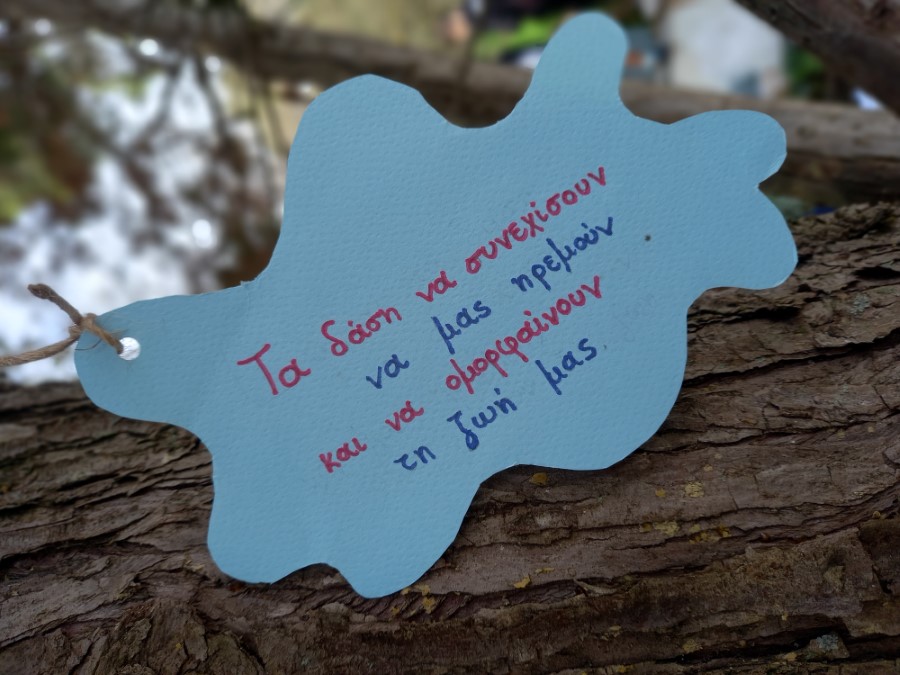 Τα δάση να συνεχίσουν
να μας ηρεμούν
και να ομορφαίνουν
τη ζωή μας.